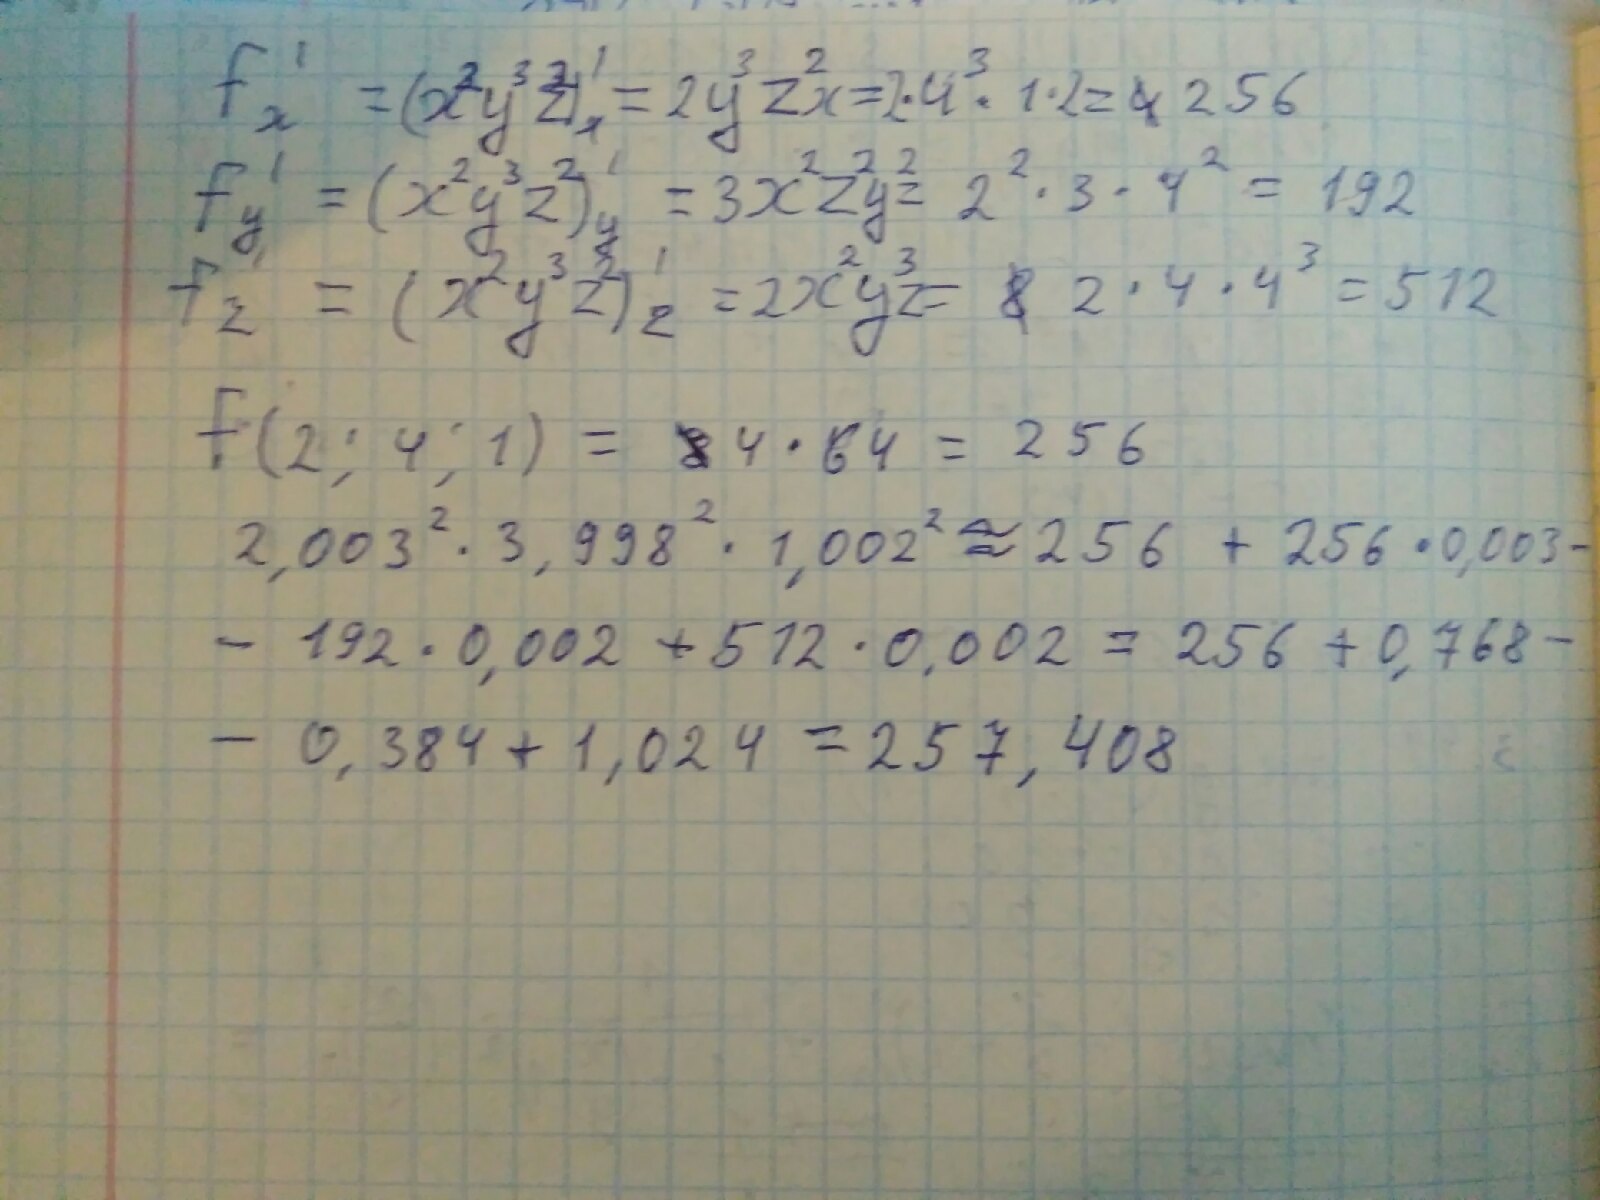 f'x = (x²y³z²)'x = 2y³z²x = 2·4³·1·2 = 256
f'y = (x²y³z²)'y = 3x²z²y² = 2²·3·4² = 192
f'z = (x²y³z²)'z = 2x²y³z = 2·4·4³ = 512
f(2; 4; 1) = 4·64 = 256
2,003²·3,998²·1,002² ≈ 256 + 256·0,003 -
- 192·0,002 + 512·0,002 = 256 + 0,768 -
- 0,384 + 1,024 = 257,408